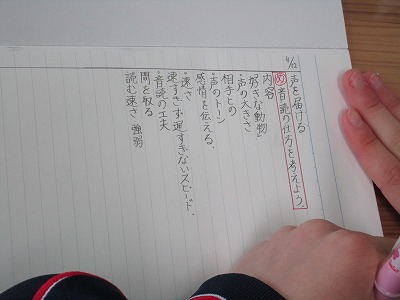 4/12
声を届ける
め 音読の仕方を考えよう。
内容
「好きな動物」
・声の大きさ
相手との
・声のトーン
感情を伝える。
・速さ
速すぎず遅すぎないスピード。
・音読の工夫
間を取る
読む速さ 強弱